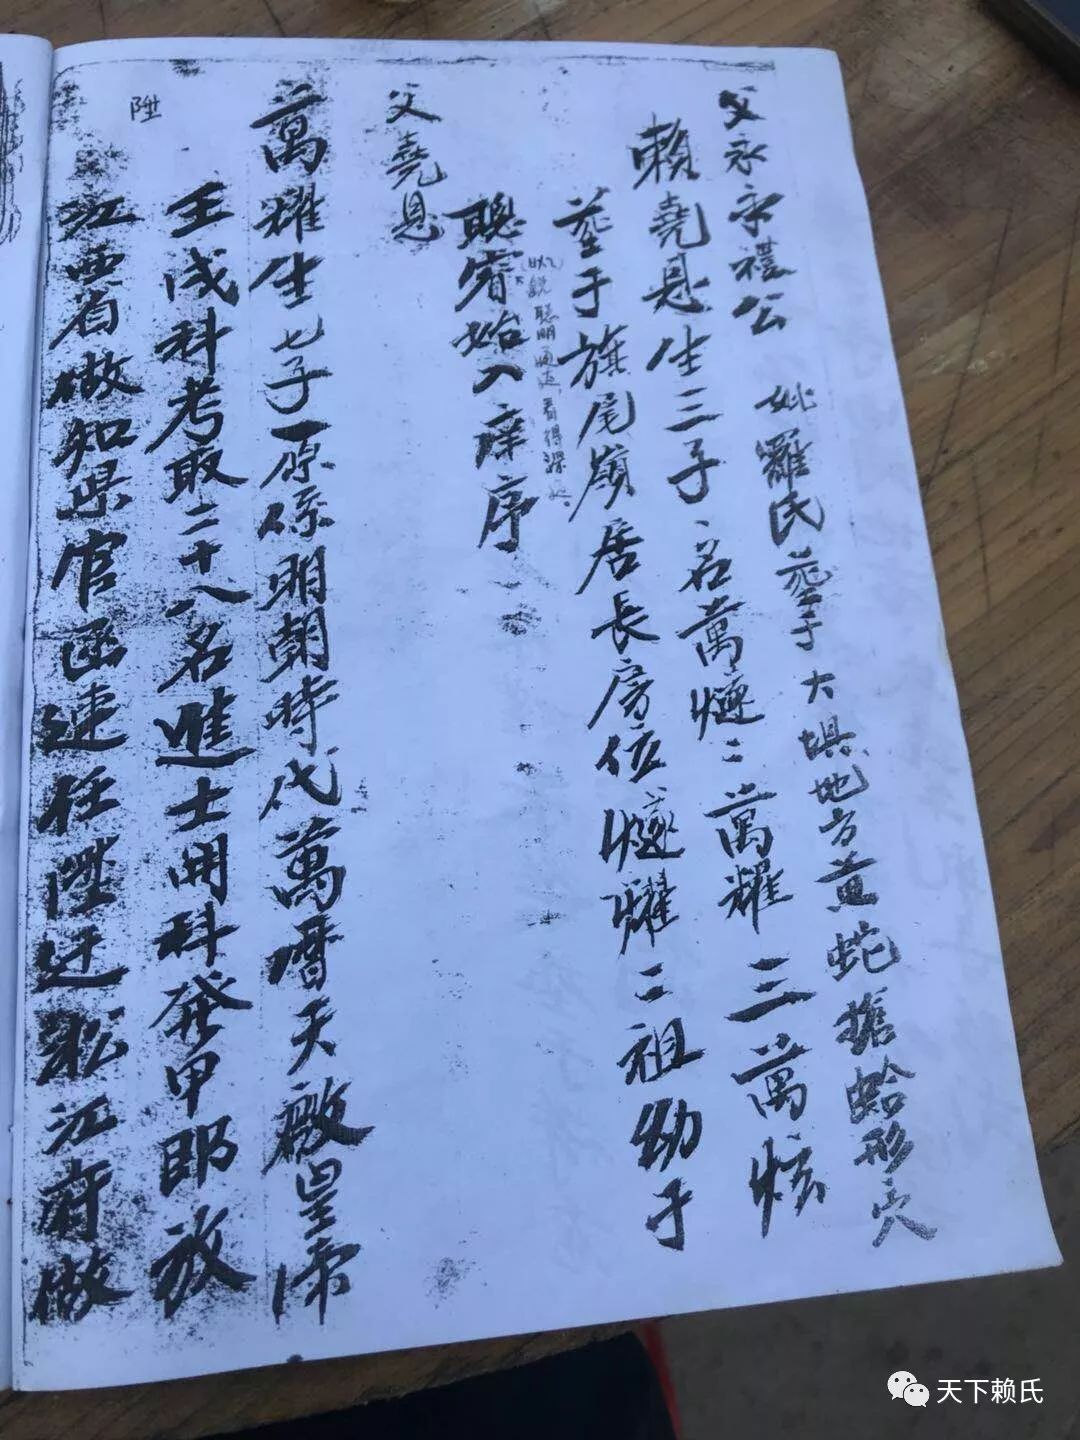 父永宗禮公 妣羅氏葬于大垻地方黃蛇搶蛤形穴
賴堯恩生三子名萬燧二萬耀三萬炫
葬于旗尾嶺居長房位燧耀二祖幼子
聰睿始入庠序
聰明 看得深
父堯恩
萬耀生七子原係明朝時代萬曆天啟皇帝
壬戌科考取二十八名進士用科發甲即放
陞
江西省做知県官函速任陞迁松江府做
天下赖氏